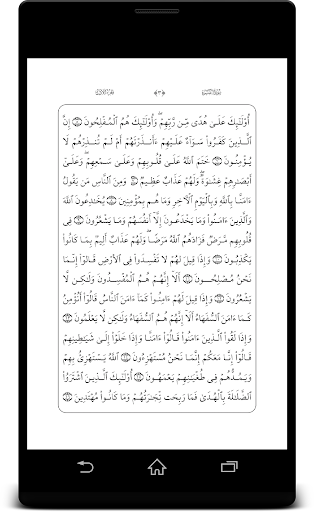 أُوْلَٰٓئِكَ عَلَىٰ هُدًى مِّن رَّبِّهِمْ ۖ وَأُوْلَٰٓئِكَ هُمُ ٱلْمُفْلِحُونَ إِنَّ
ٱلَّذِينَ كَفَرُوا۟ سَوَآءٌ عَلَيْهِمْ ءَأَنذَرْتَهُمْ أَمْ لَمْ تُنذِرْهُمْ لَا
يُؤْمِنُونَ خَتَمَ ٱللَّهُ عَلَىٰ قُلُوبِهِمْ وَعَلَىٰ سَمْعِهِمْ ۖ وَعَلَىٰٓ
أَبْصَٰرِهِمْ غِشَٰوَةٌ ۖ وَلَهُمْ عَذَابٌ عَظِيمٌ وَمِنَ ٱلنَّاسِ مَن يَقُولُ
ءَامَنَّا بِٱللَّهِ وَبِٱلْيَوْمِ ٱلْءَاخِرِ وَمَا هُم بِمُؤْمِنِينَ يُخَٰدِعُونَ ٱللَّهَ
وَٱلَّذِينَ ءَامَنُوا۟ وَمَا يَخْدَعُونَ إِلَّآ أَنفُسَهُمْ وَمَا يَشْعُرُونَ فِى
قُلُوبِهِم مَّرَضٌ فَزَادَهُمُ ٱللَّهُ مَرَضًا ۖ وَلَهُمْ عَذَابٌ أَلِيمٌۢ بِمَا كَانُوا۟
يَكْذِبُونَ وَإِذَا قِيلَ لَهُمْ لَا تُفْسِدُوا۟ فِى ٱلْأَرْضِ قَالُوٓا۟ إِنَّمَا
نَحْنُ مُصْلِحُونَ أَلَآ إِنَّهُمْ هُمُ ٱلْمُفْسِدُونَ وَلَٰكِن لَّا
يَشْعُرُونَ وَإِذَا قِيلَ لَهُمْ ءَامِنُوا۟ كَمَآ ءَامَنَ ٱلنَّاسُ قَالُوٓا۟ أَنُؤْمِنُ
كَمَآ ءَامَنَ ٱلسُّفَهَآءُ ۗ أَلَآ إِنَّهُمْ هُمُ ٱلسُّفَهَآءُ وَلَٰكِن لَّا يَعْلَمُونَ
وَإِذَا لَقُوا۟ ٱلَّذِينَ ءَامَنُوا۟ قَالُوٓا۟ ءَامَنَّا وَإِذَا خَلَوْا۟ إِلَىٰ شَيَٰطِينِهِمْ
قَالُوٓا۟ إِنَّا مَعَكُمْ إِنَّمَا نَحْنُ مُسْتَهْزِءُونَ ٱللَّهُ يَسْتَهْزِئُ بِهِمْ
وَيَمُدُّهُمْ فِى طُغْيَٰنِهِمْ يَعْمَهُونَ أُوْلَٰٓئِكَ ٱلَّذِينَ ٱشْتَرَوُا۟
ٱلضَّلَٰلَةَ بِٱلْهُدَىٰ فَمَا رَبِحَت تِّجَٰرَتُهُمْ وَمَا كَانُوا۟ مُهْتَدِينَ